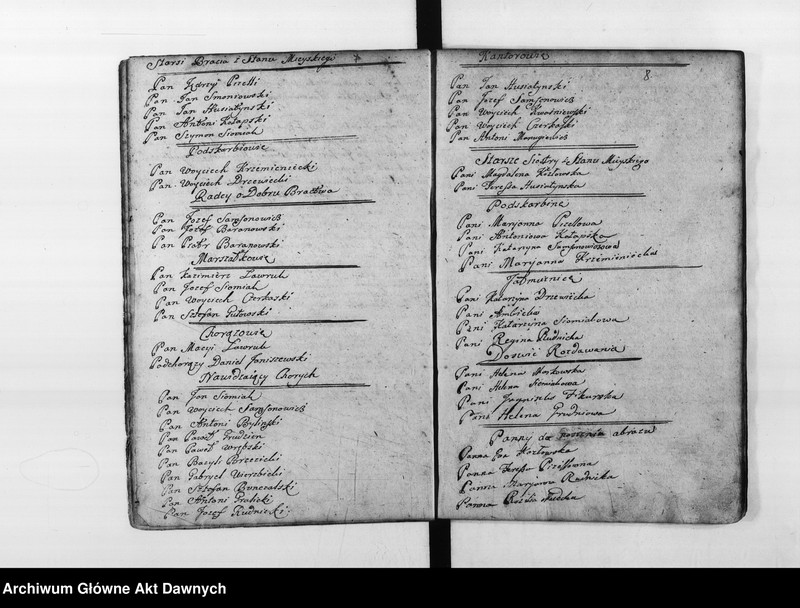 Starsi Bracia z Stanu Mieyskiego
Pan Jerzy Pizelli
Pan Jan Smoniowski
Pan Jan Husiatynski
Pan Antoni Kałapski
Pan Szymon Siomiak
Podskarbiowie
Pan Woyciech Krzemieniecki
Pan Woyciech Drzewiecki
Radcy o Dobru Bractwa
Pan Jozef Samsonowicz
Pan Jozef Baranowski
Pan Piotr Baranowski
Marszałkowie
Pan Kazimierz Ławruk
Pan Jozef Siomiak
Pan Woyciech Czerkaski
Pan Sztefan Gutowski
Chorązowie
Pan Maciy Ławruk
Podchorązy Daniel Janiszewski
Nawidzaiący Chorych
Pan Jan Siomiak
Pan Woyciech Samsonowicz
Pan Antoni Bylinski
Pan Paweł Grudzien
Pan Paweł
Pan Bazyli Brzezicki
Pan Gabryel Wierzbicki
Pan Sztefan
Pan Antoni Gralicki
Pan Jozef Rudnicki
8.
Kantorowie
Pan Jan Husiatynski
Pan Jozef Samsonowicz
Pan Woyciech Kwasniewski
Pan Woyciech Czerkaski
Pan Antoni
Starsze Siostry z Stanu Mieyskiego
Pani Magdalena Kozłowska
Pani Teressa Husiatynska
Podskarbine
Pani Maryanna Pizellowa
Pani Antoniowa Kałapska
Pani Katarzyna Samsonowiczowa
Pani Maryanna Krzemieniecka
Jałmuznice
Pani Katarzyna Drzewicka
Pani
Pani Katarzyna Siomiakowa
Pani Regina Rudnicka
Dozwić Rozdawania
Pani Helena Moskowska
Pani Helena Siomiakowa
Pani Jagnieszka Sikurska
Pani Helena Grudniowa
Panny do noszenia obrazu
Panna Ewa Kozłowska
Panna Teressa Pizellowna
Panna Maryanna Rudnicka
Panna Rozalia
Archiwum Główne Akt Dawnych